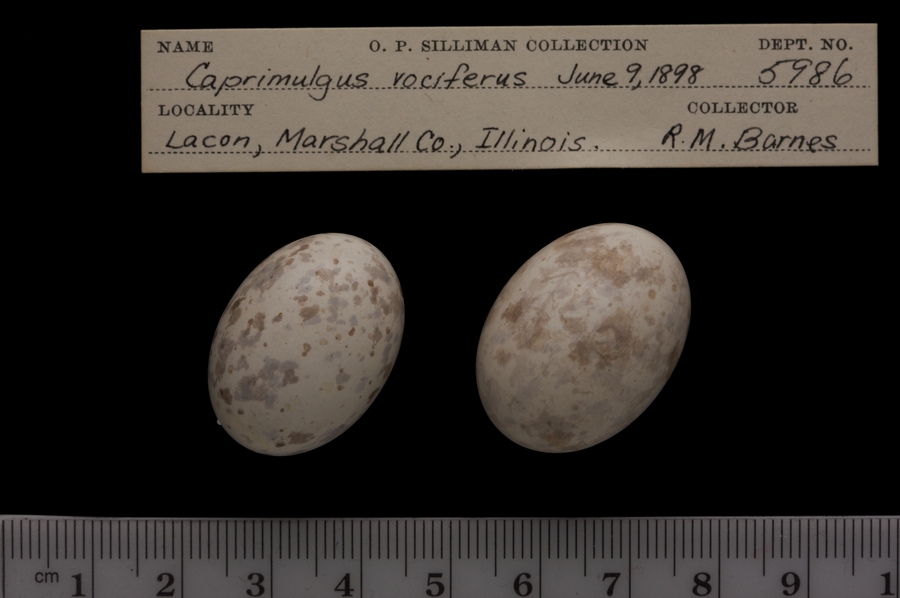 NAME O. P. SILLIMAN COLLECTION DEPT. NO.
Caprimulgus vociferus June 9, 1898 5986
LOCALITY COLLECTOR
Lacon, Marshall Co., Illinois. R. M. Barnes
cm 1 2 3 4 5 6 7 8 9 1